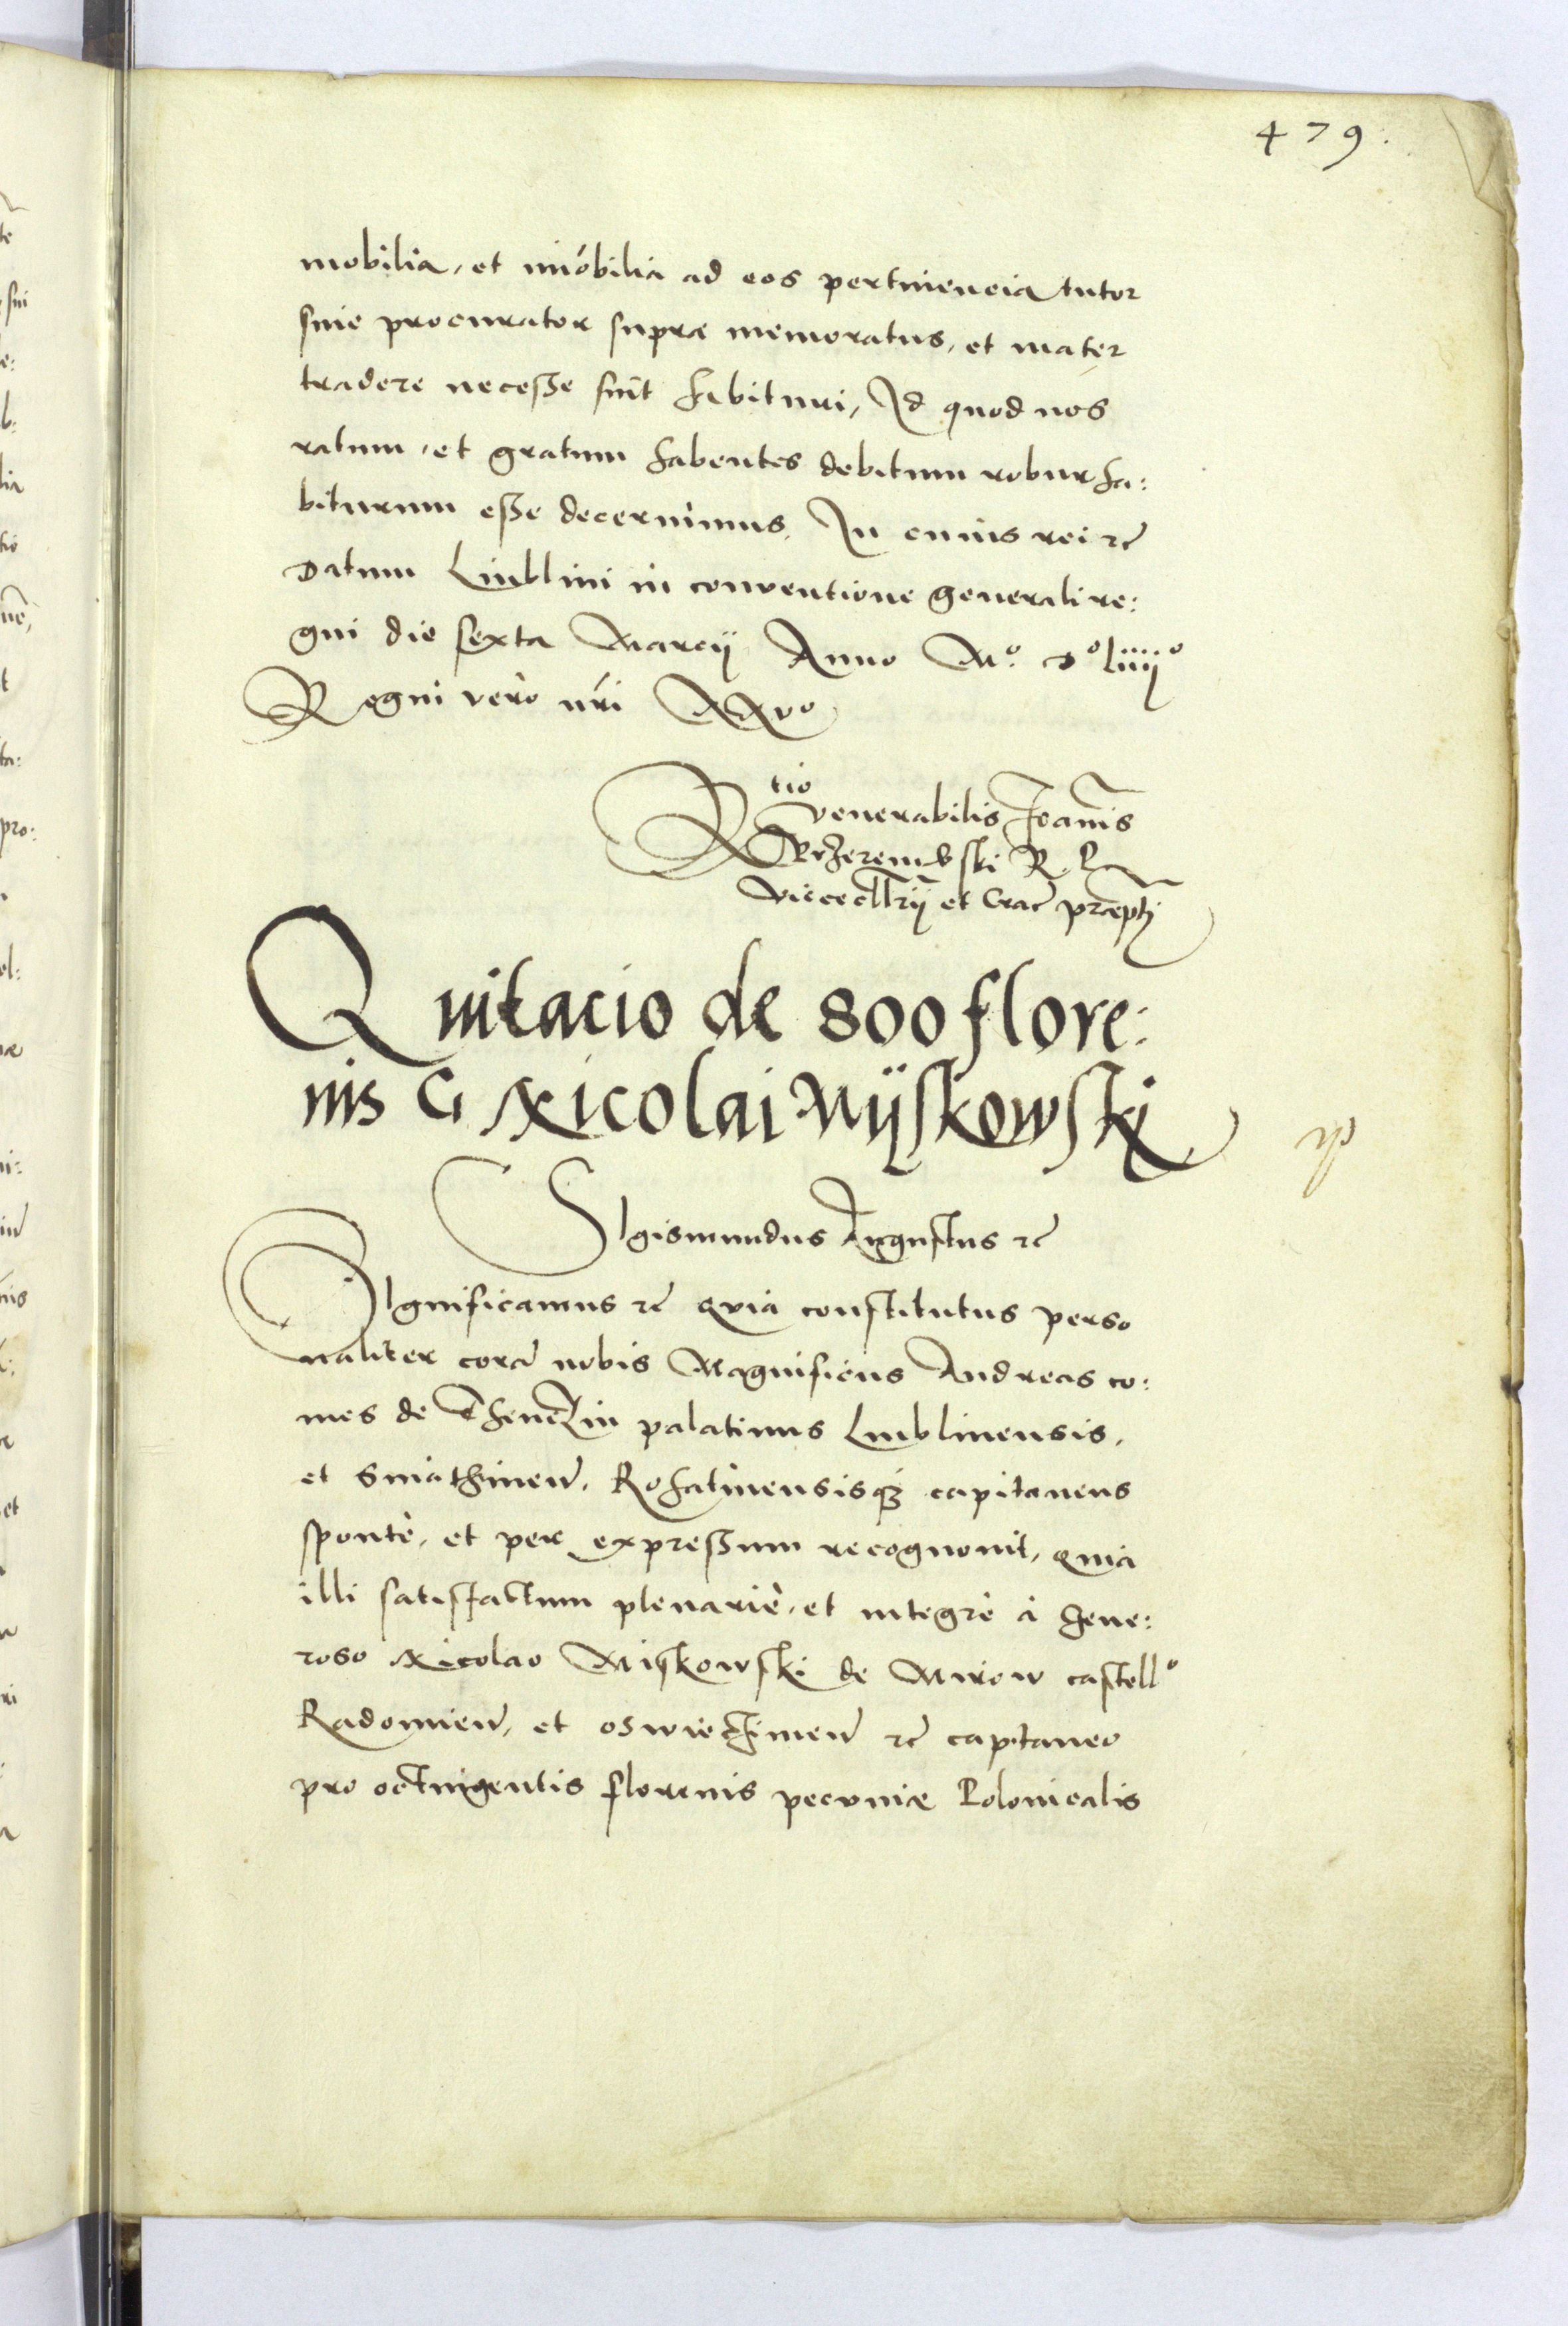 479.
mobilia, et imóbilia ad eos pertinencia tutor
siue procurator supra memoratus, et mater
tradere necesse sint habituri, Id quod nos
ratum, et gratum habentes debitum robur ha:
biturum esse decernimus. In cuius rei etc̃
Datum Lublini in conventione generali re:
gni die sexta Marcij Anno Mº. Dº liiijº
Regni vero nr̃i XXvº
Rtio
venerabilis Joannis
Przerembski R. P.
Vicecancllrij et Crac̃ præptj
Quitacio de 800 flore:
nis G Nicolai Mijskowskj
SIgismundus Augustus etc̃
SIgnificamus etc̃ quia constitutus perso
naliter corã nobis Magnificus Andreas co:
mes de Thenczin palatinus Lublinensis,
et Sniathinen̄. Rohatinensisq3 capitaneus
sponte, et per expressum recognouit, quia
illi satisfactum plenariè, et integrè à gene:
roso Nicolao Miskowski de Mirow castellº
Radomien̄, et Oswieczimen̄ etc̃ capitaneo
pro octingentis florenis pecuniæ Polonicalis